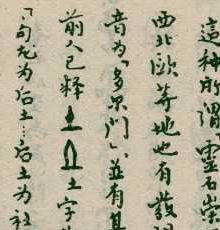 這種所謂靈石崇
西北歐等地也有發現
音为「多尔門」，並有其
前人已釋土 土字
「句龙为后土…后土为社